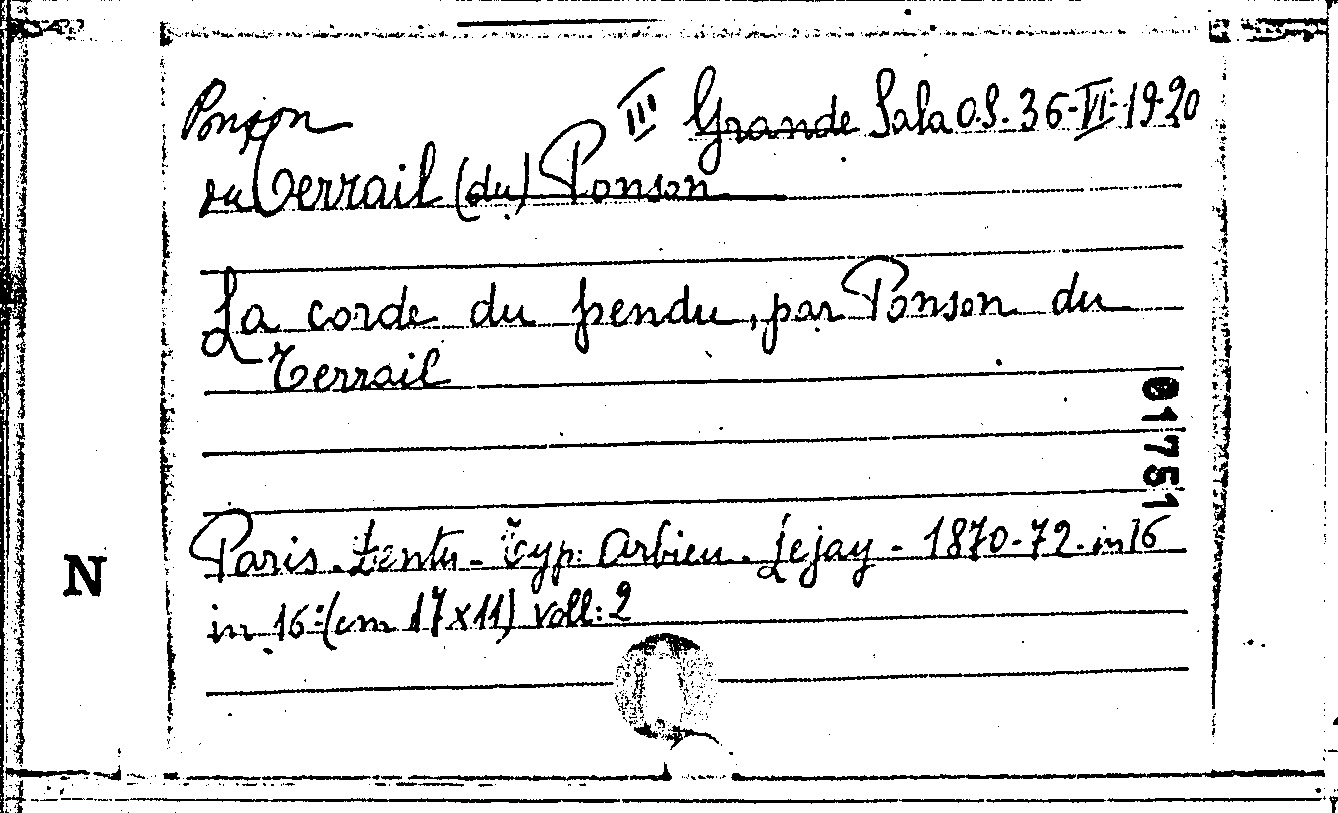 Ponson III Grande Sala O.S. 36-VI-19-20
du Terrail (du) Ponson
La corde du pendu, par Ponson du
Terrail
017511
Paris. Dentu - Typ: Arbieu. Lejay - 1870-72. in 16
in 16: (cm 17x11) voll: 2
N